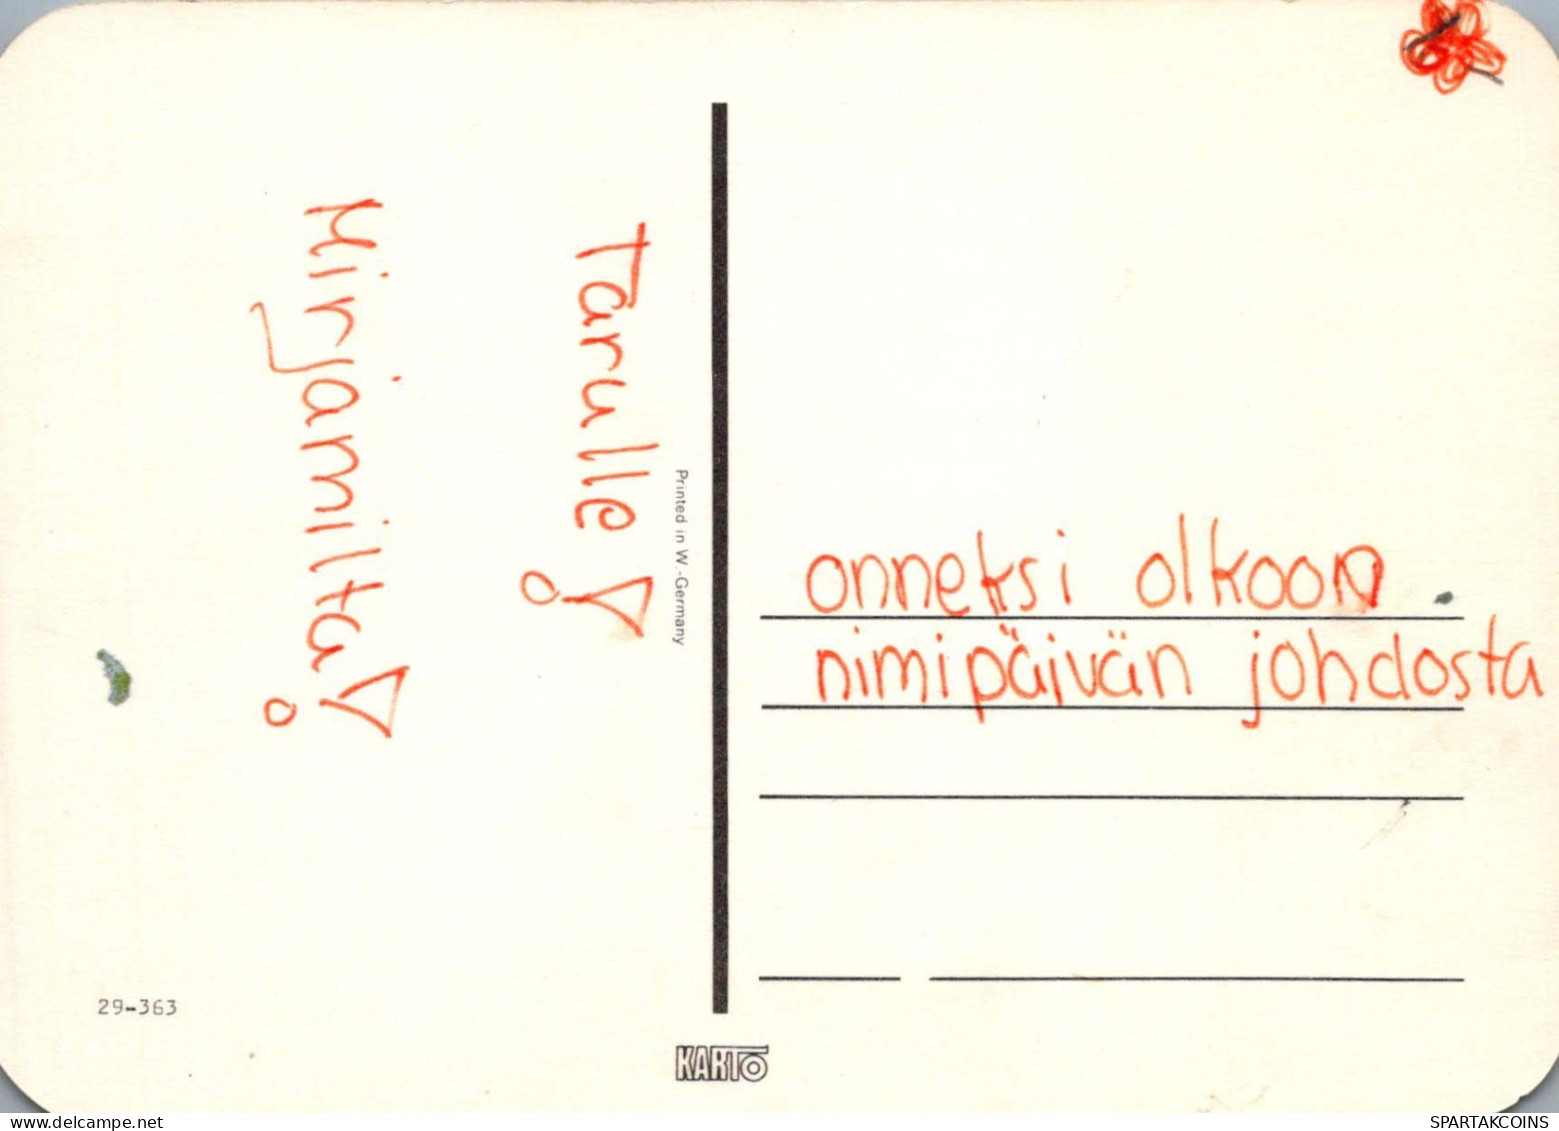 Tarulle!
Mirjamilta!
Printed in W.-Germany
onneksi olkoon
nimipäivän johdosta
29-363
KARTO
SPARTAKCOINS